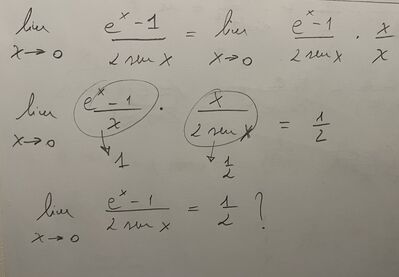 lim x→0 (e^x - 1)/(2 sen x) = lim x→0 (e^x - 1)/(2 sen x) · x/x
lim x→0 (e^x - 1)/x · x/(2 sen x) = 1/2
↓ 1 ↓ 1/2
lim x→0 (e^x - 1)/(2 sen x) = 1/2 ?